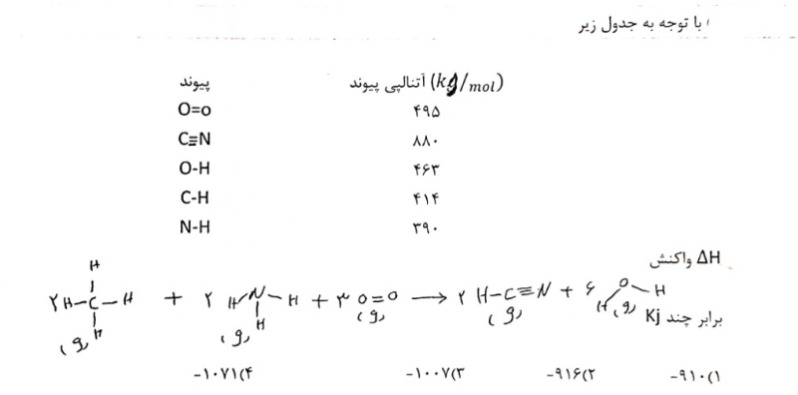 با توجه به جدول زیر
پیوند	آنتالپی پیوند (kg/mol)
O=o	۴۹۵
C≡N	۸۸۰
O-H	۴۶۳
C-H	۴۱۴
N-H	۳۹۰
ΔH واکنش
H
۲H-C-H + ۲ H-N-H + ۳ O=O → ۲ H-C≡N + ۶ O-H
H H H
(و) (و) (و) (و) (و)
برابر چند Kj
۱)۹۱۰- ۲)۹۱۶- ۳)۱۰۰۷- ۴)۱۰۷۱-